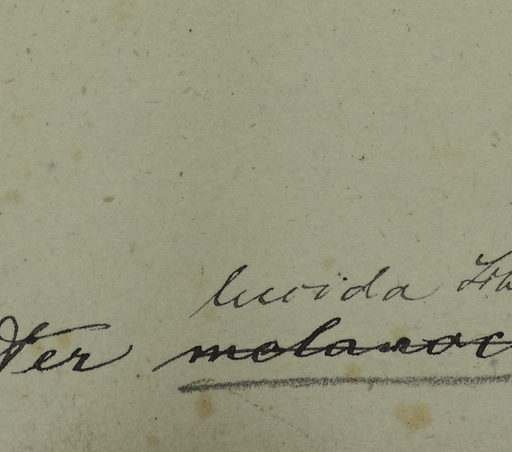 lucida
Ver melanoc